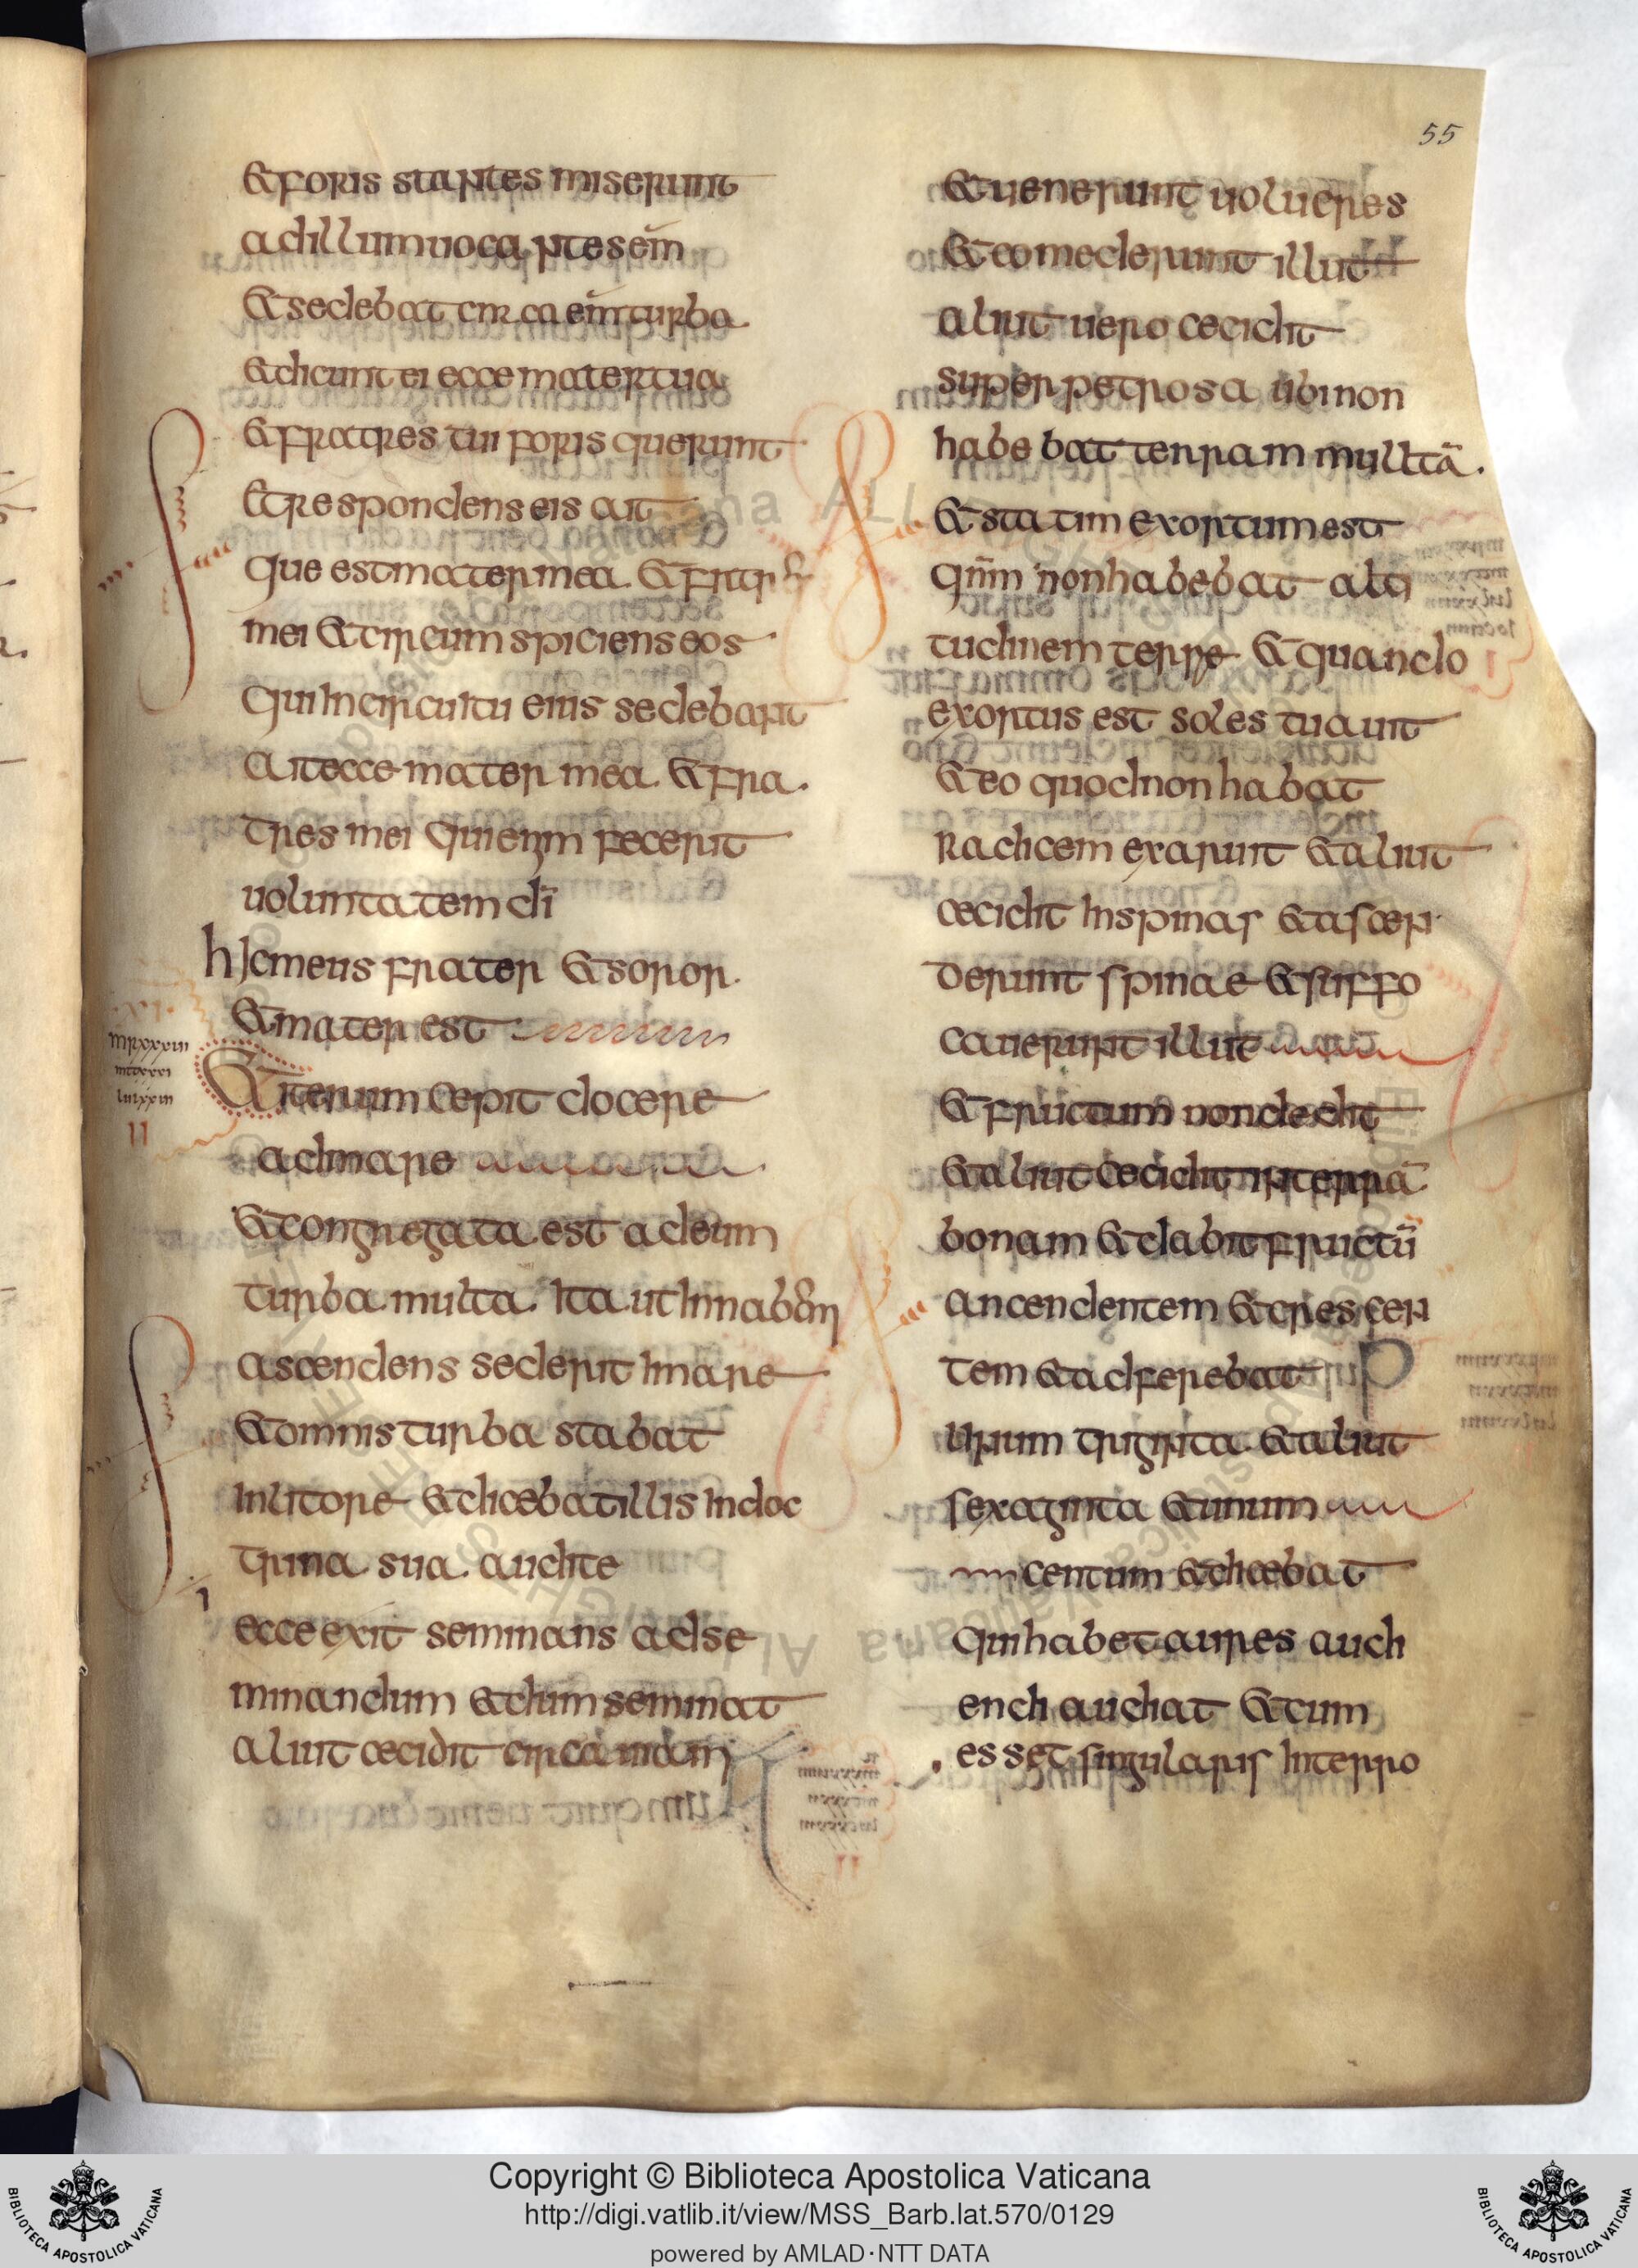 55
&foris stantes miserunt
adillumuocantesem̄
&sedebat circa eūm turba
&dicunt ei ecce mater tua
&fratres tui foris querunt
Et respondens eis ait
que estmater mea &fratr
mei &circum spiciens eos
Qui In circuitu eius sedebant
Ait ecce mater mea & fra
tres mei Qui enim fecerit
uoluntatem di̅
hic meus frater & soror
&mater est
XI
mrxxxvi
mtcxxxi
luixxvi
II
&iterum cepit docere
admare
&congregata est ad eum
turba multa Ita ut Innabem
ascendens sederit Inmare
&omnis turba stabat
Inlitore &dicebat illis Indoc
trina sua audite
ecce exit seminans adse
minandum &dum seminat
aliut cecidit circa uiam
&uenerunt uolucres
&comederunt illut
aliut uero cecidit
super petrosa ubi non
habebat terram mulltā
&statim exortum est
qnm̄ non habebat alti
tudinem terre & quando
exortus est sol estuauit
&eo quod non habat
Radicem exaruit &aliut
cecidit Inspinas &ascen
derunt spinae &suffo
cauerunt illut
&fructum non dedit
&aliut cecidit In terrā
bonam &dabit fructū
ancendentem &crescen
tem &adferebat
unum triginta &aliut
sexaginta &unum
centum &dicebat
Qui habet aures audi
endi audiat &cum
esset singularis Interro
Copyright © Biblioteca Apostolica Vaticana
http://digi.vatlib.it/view/MSS_Barb.lat.570/0129
powered by AMLAD·NTT DATA
BIBLIOTECA APOSTOLICA VATICANA
BIBLIOTECA APOSTOLICA VATICANA